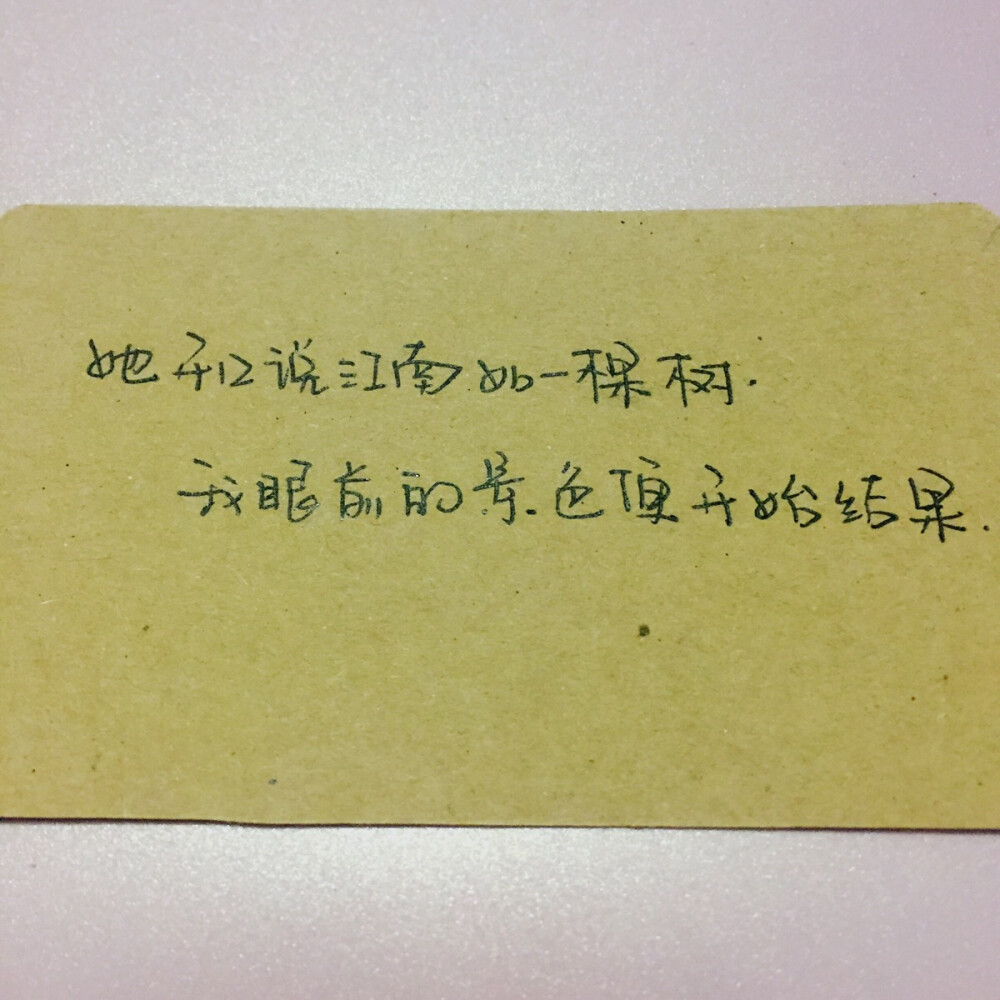 她开口说江南如一棵树.
我眼前的景色便开始结果.